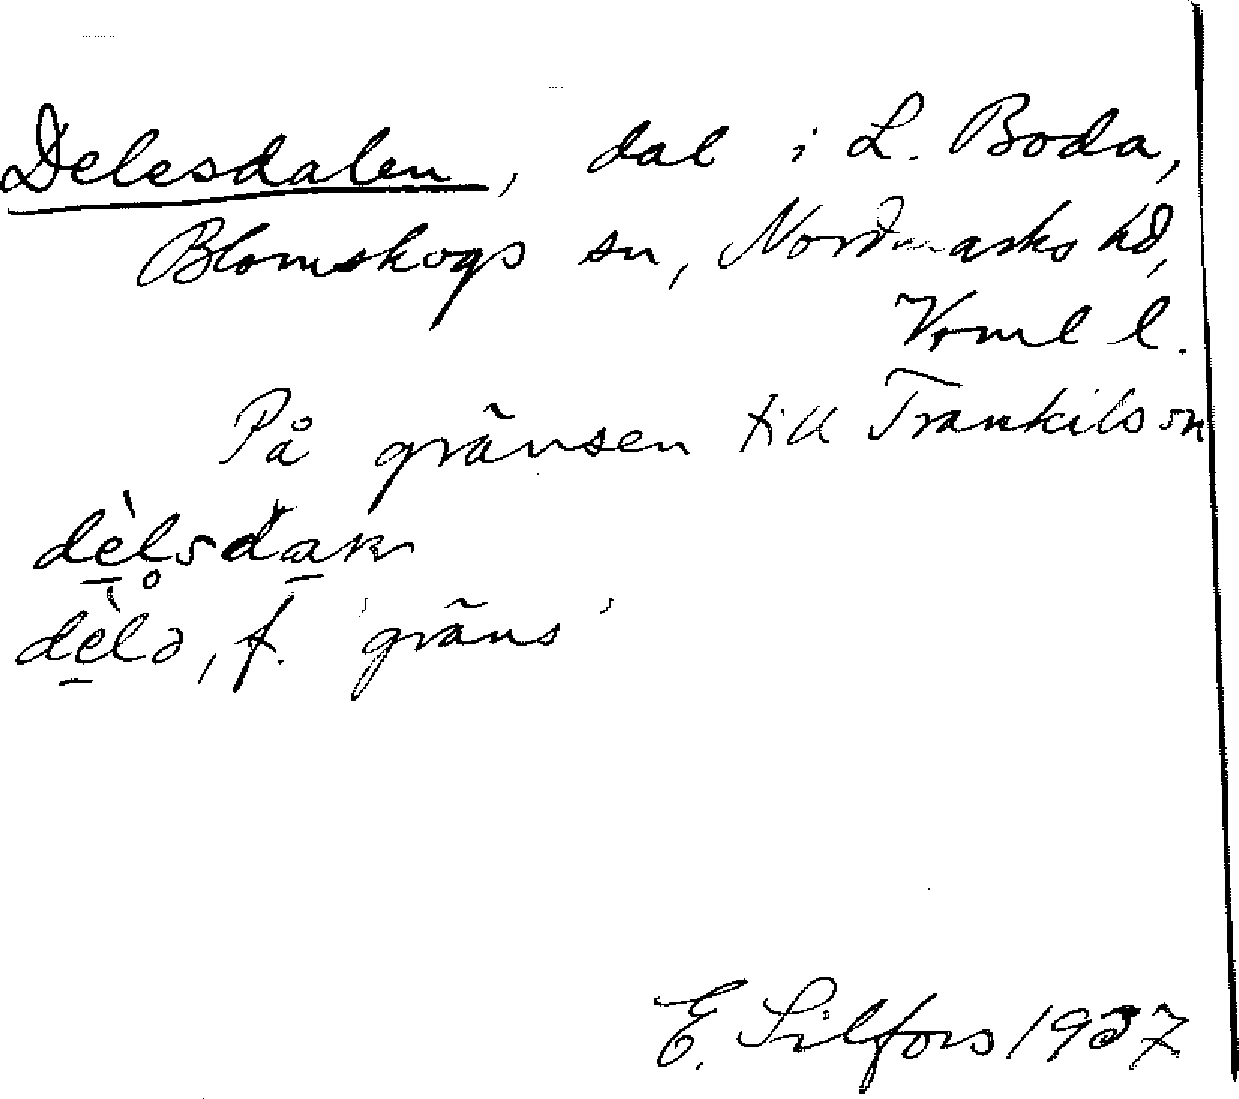 Delesdalen, dal i L. Boda,
Blomskogs sn, Nordmarks hd,
Vrml l.
På gränsen till Trankils sn
dèlsdan
dèlə, f. 'gräns'
E. Silfors 1937